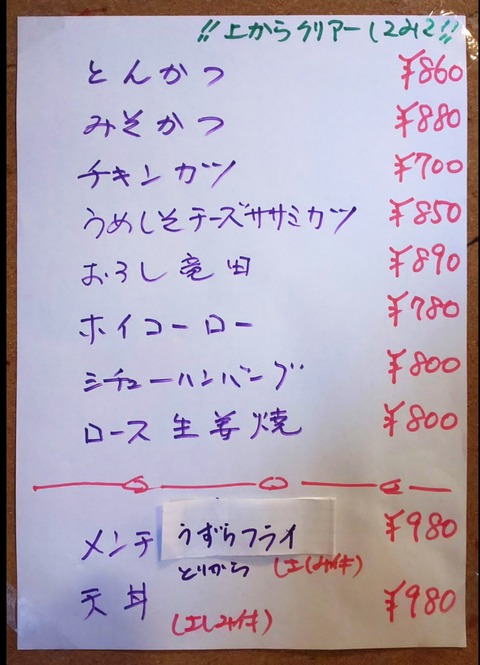 !!上からクリアーしてみて!!
とんかつ ¥860
みそかつ ¥880
チキンカツ ¥700
うめしそチーズササミカツ ¥850
おろし竜田 ¥890
ホイコーロー ¥780
シチューハンバーグ ¥800
ロース生姜焼 ¥800
メンチ うずらフライ ¥980
とりから (エしみ付)
天丼 ¥980
(エしみ付)